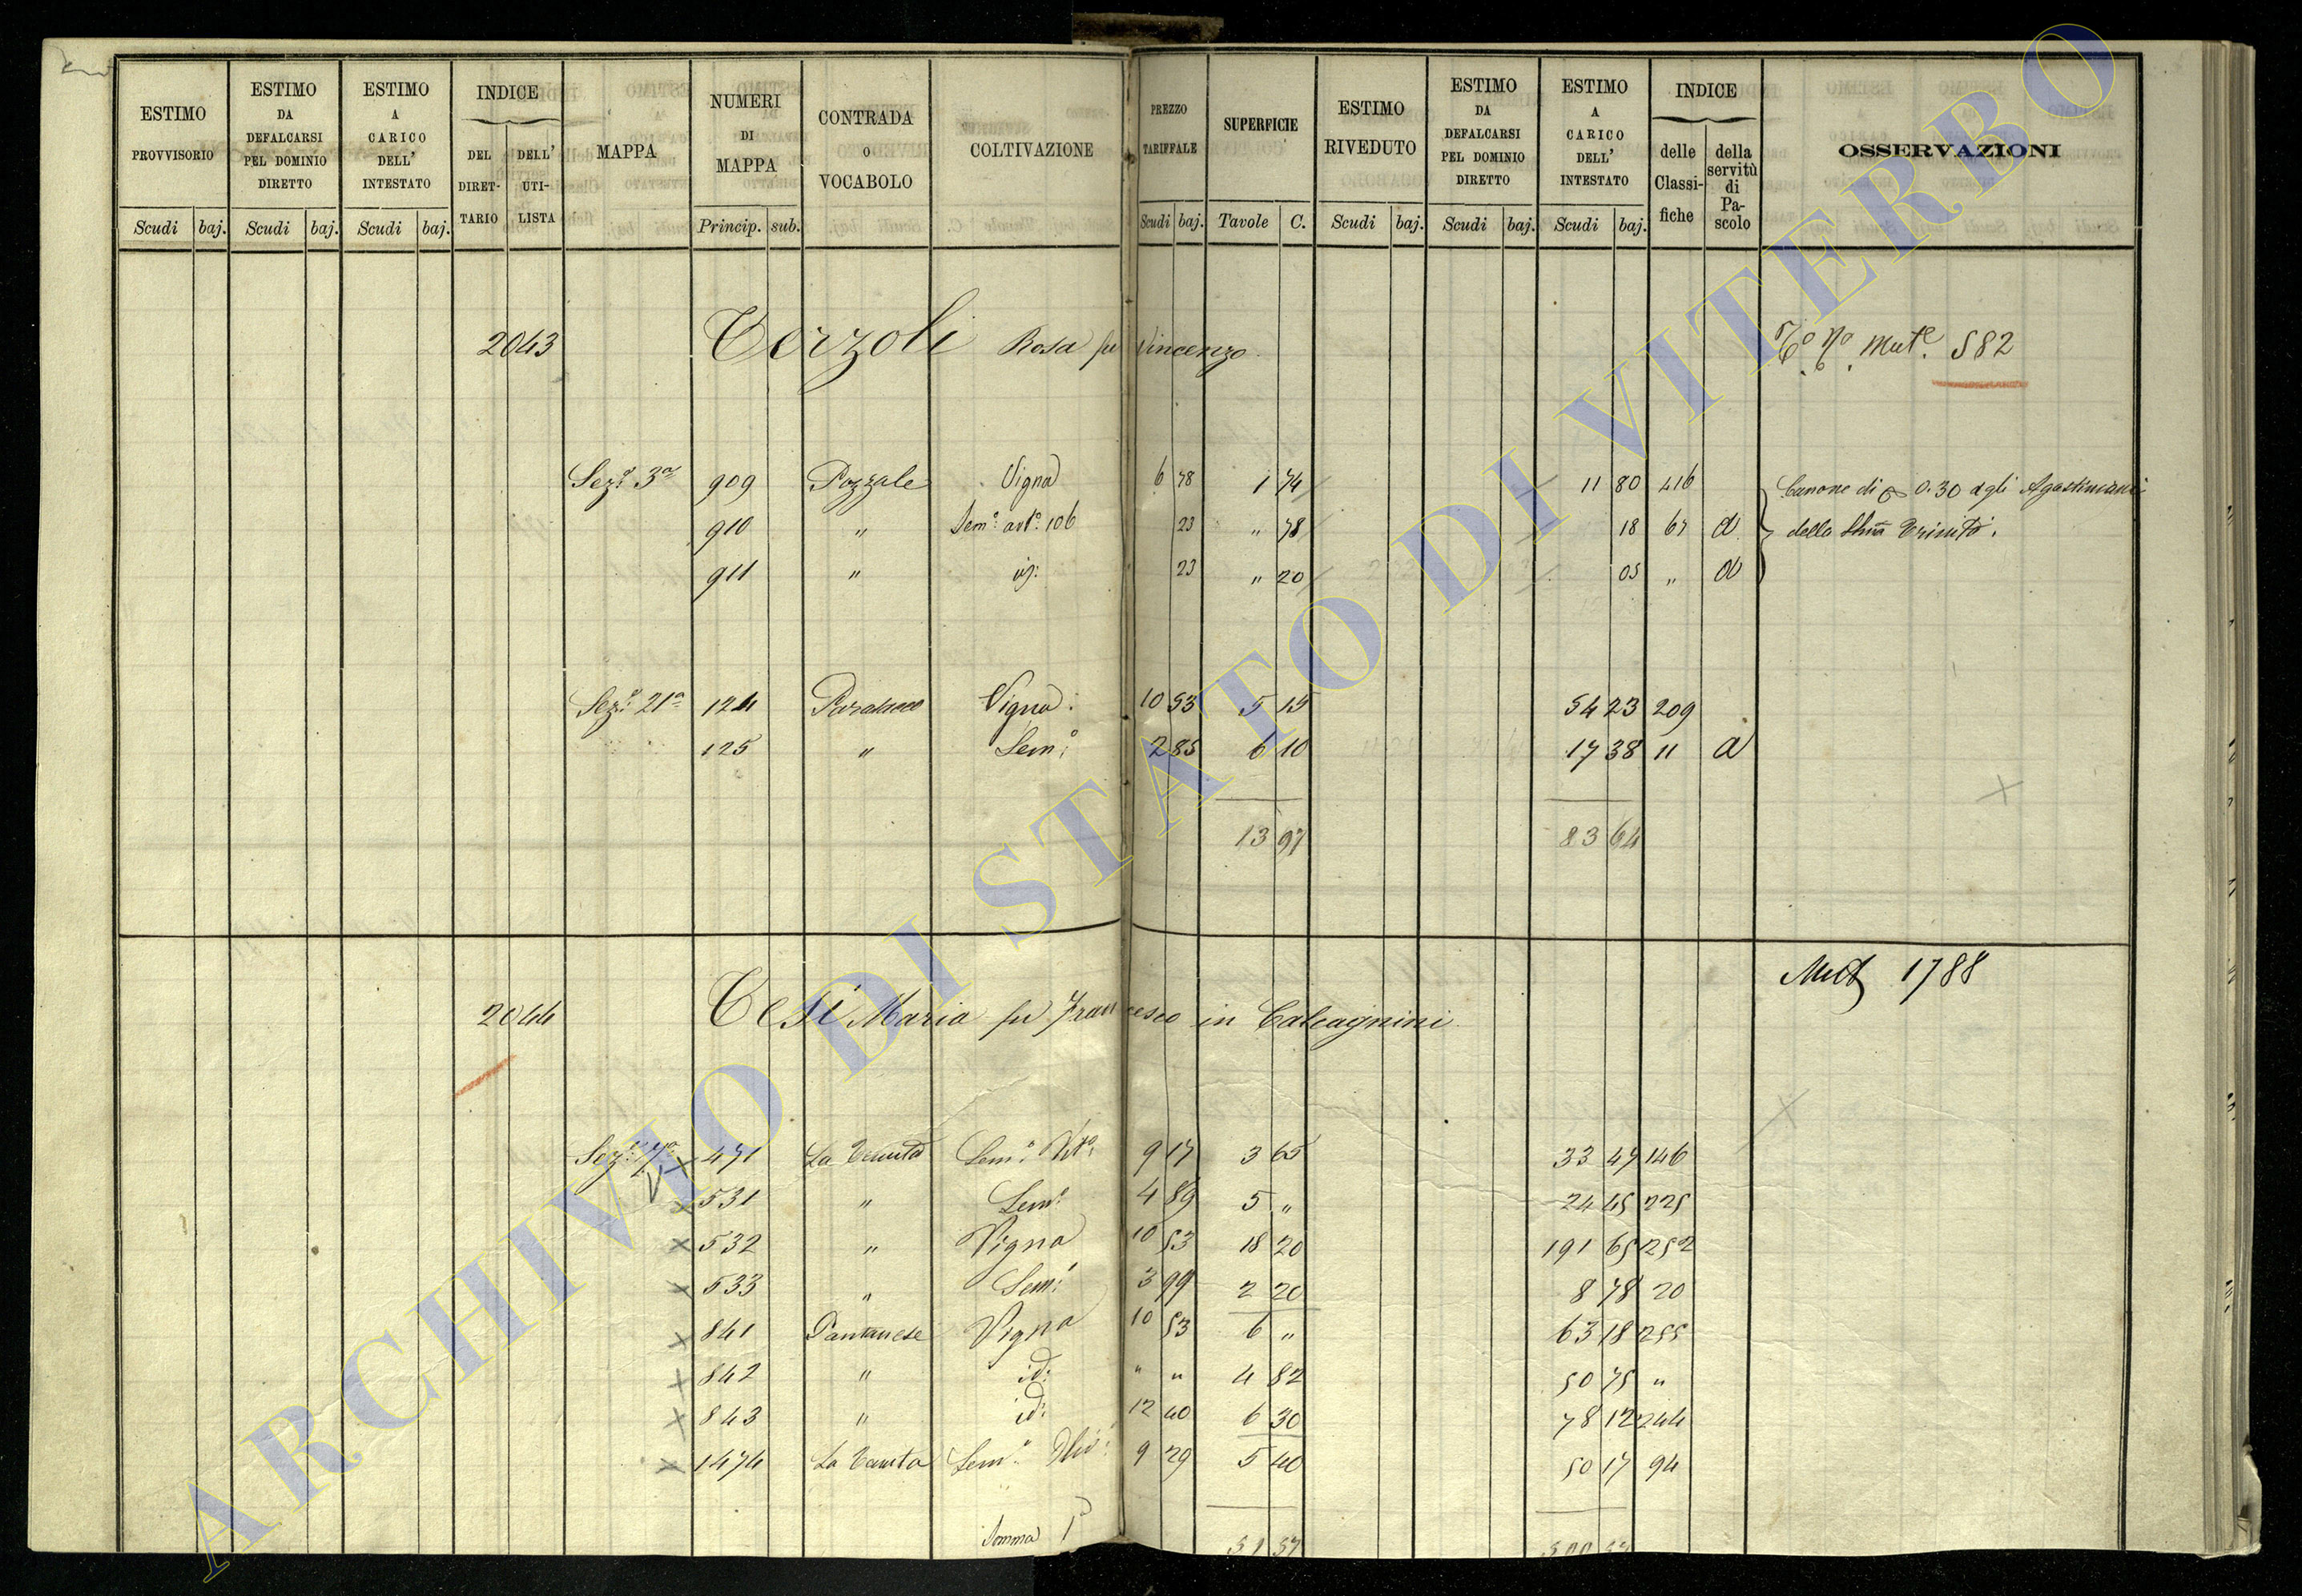 ESTIMO PROVVISORIO Scudi baj.
ESTIMO DA DEFALCARSI PEL DOMINIO DIRETTO Scudi baj.
ESTIMO A CARICO DELL' INTESTATO Scudi baj.
INDICE DEL DIRET-TARIO DELL' UTI-LISTA
MAPPA
NUMERI DI MAPPA Princip. sub.
CONTRADA O VOCABOLO
COLTIVAZIONE
PREZZO TARIFFALE Scudi baj.
SUPERFICIE Tavole C.
ESTIMO RIVEDUTO Scudi baj.
ESTIMO DA DEFALCARSI PEL DOMINIO DIRETTO Scudi baj.
ESTIMO A CARICO DELL' INTESTATO Scudi baj.
INDICE delle Classi-fiche della servitù di Pa-scolo
OSSERVAZIONI
2043 Terzoli Rosa fu Vincenzo Mut.e 582
Sez.e 3a 909 Pozzale Vigna 6 78 1 74 11 80 216 Canone di 0.30 agli Agostiniani
910 " Sem.o 23 " 78 18 67 a della Trinità.
911 " id: 23 " 20 05 " a
Sez.e 21a 124 Vigna 10 53 5 15 54 23 209
125 " Sem.o 2 85 6 10 17 38 11 a
13 97 83 64
Mut 1788
2044 Tesi Maria fu Francesco in Calcagnini
Sez.e 471 La Tenuta Sem.o Vit.o 9 17 3 65 33 47 146
531 " Sem.o 4 89 5 " 24 45 225
532 " Vigna 10 53 18 20 191 65 252
533 " Sem.o 3 99 2 20 8 78 20
841 Pantanese Vigna 10 53 6 " 63 18 255
842 " id: " " 4 82 50 75 "
843 " id: 12 40 6 30 78 12 244
1474 La Tenuta Sem.o Oliv.o 9 29 5 40 50 17 94
Somma 51 57
ARCHIVIO DI STATO DI VITERBO